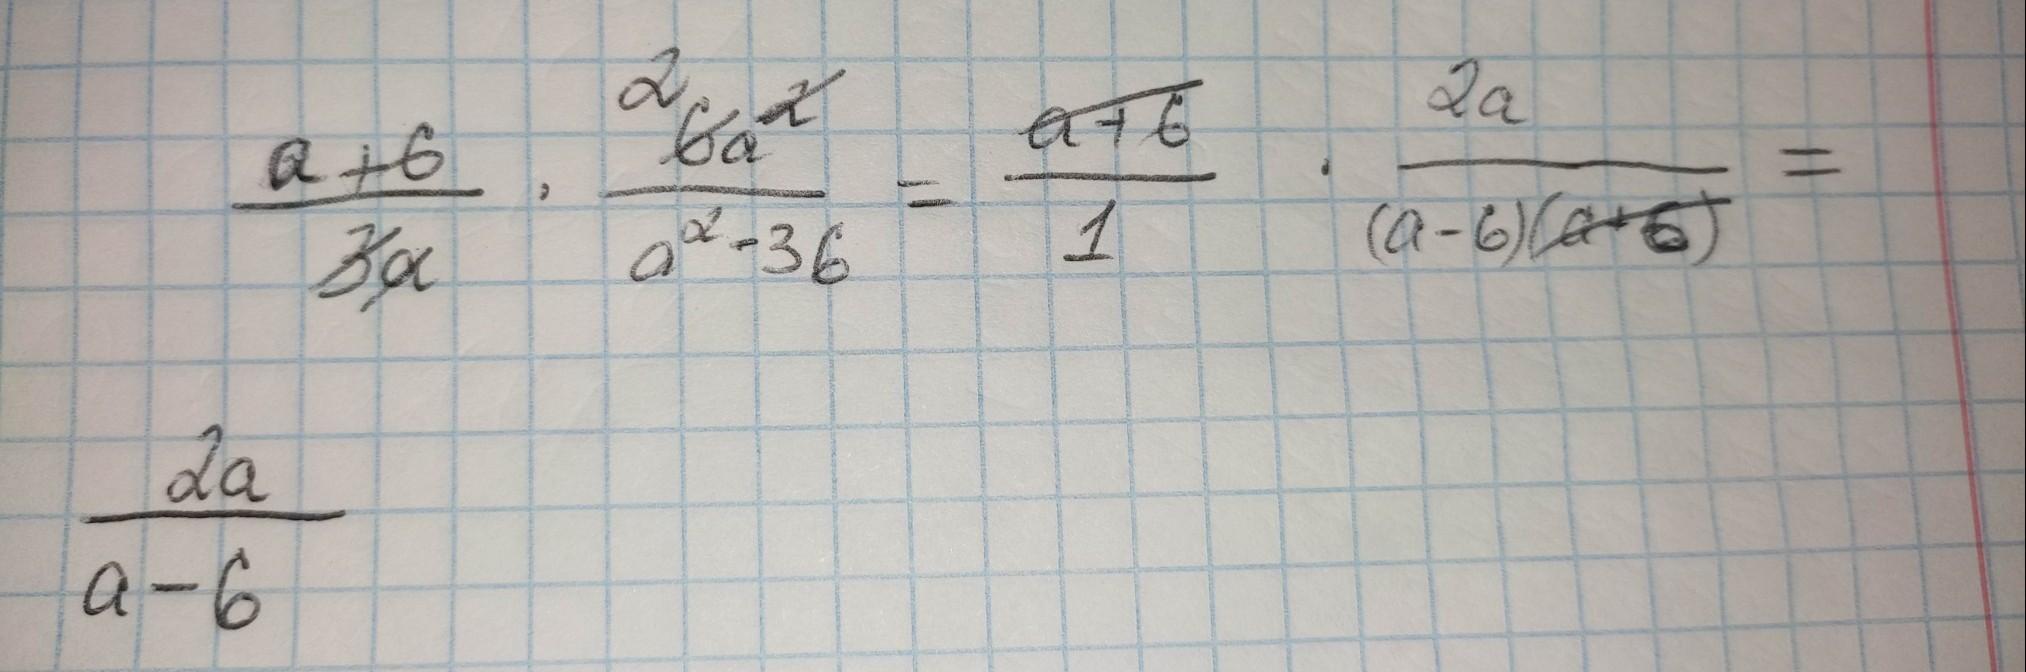 (a+6)/(3a) · (²6a²)/(a²-36) = (a+6)/1 · 2a/((a-6)(a+6)) =
2a/(a-6)